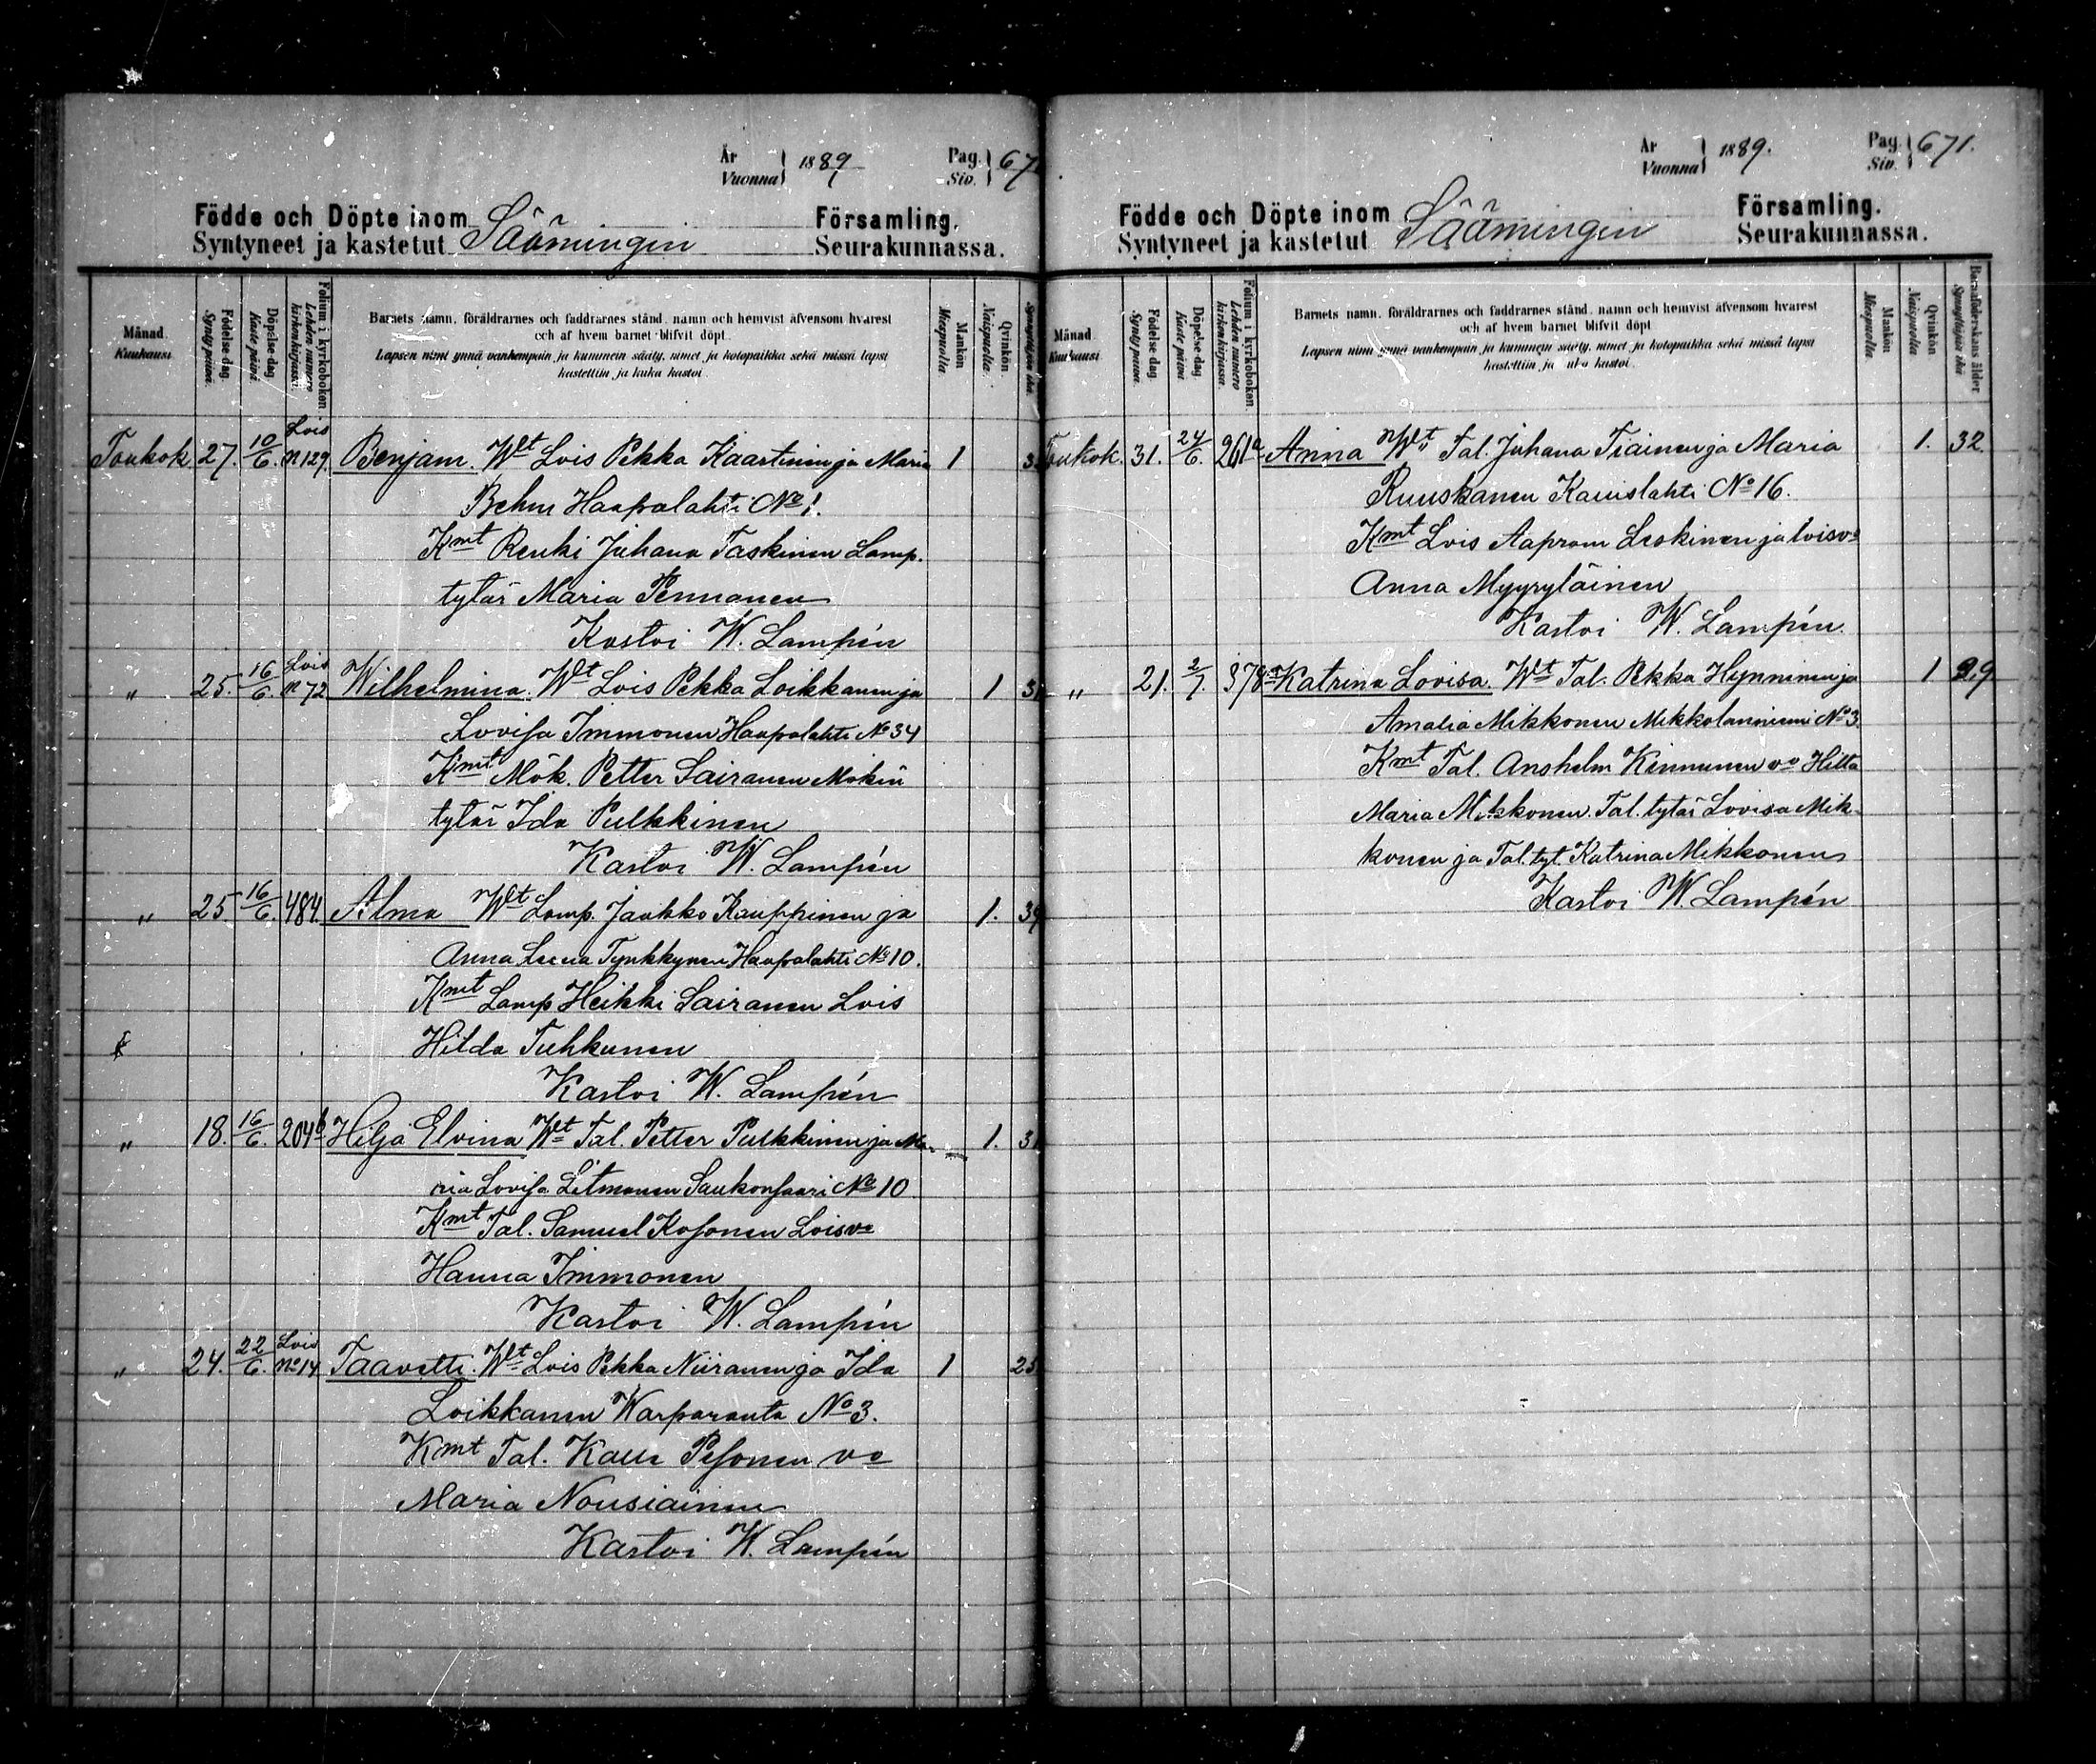 År
Vuonna } 1889
Pag.
Siv. } 67
Födde och Döpte inom
Syntyneet ja kastetut Säämingin Församling.
Seurakunnassa.
Månad.
Kuukausi.
Födelse dag.
Synty päivä.
Döpelse dag.
Kaste päivä.
Folium i kyrkoboken.
Lehden numero kirkonkirjassa.
Barnets namn, föräldrarnes och faddrarnes stånd, namn och hemvist äfvensom hvarest
och af hvem barnet blifvit döpt.
Lapsen nimi ynnä vanhempain ja kummein sääty, nimet ja kotopaikka sekä missä lapsi
kastettiin ja kuka kastoi.
Mankön
Miespuolta.
Qvinkön
Naispuolta.
Toukok. 27. 10/6. Lois n 129. Benjam. Wlt Lois Pekka Kaartinen ja Maria 1
Behm Haapalahti No 1.
Kmt Renki Juhana Taskinen Lamp.
tytär Maria Pennanen
Kastoi W. Lampén
" 25. 16/6. Lois n 72 Wilhelmina. Wlt Lois Pekka Loikkanen ja 1 31
Lovisa Immonen Haapalahti No 34
Kmt Mök. Petter Sairanen Mökin
tytär Ida Pulkkinen
Kastoi W. Lampén
" 25. 16/6. 484. Alma Wlt Lamp. Jaakko Kauppinen ja 1. 39
Anna Leena Tynkkynen Haapalahti No 10.
Kmt Lamp Heikki Sairanen Lois
Hilda Tuhkunen
Kastoi W. Lampén
" 18. 16/6. 204b Hilja Elvina Wlt Tal. Petter Pulkkinen ja Ma- 1. 31
ria Lovisa Litmanen Saukonsaari No 10
Kmt Tal. Samuel Kosonen Loisvo
Hanna Immonen
Kastoi W. Lampén
" 24. 22/6. Lois No 14 Taavetti. Wlt Lois Pekka Niiranen ja Ida 1 25
Loikkanen Warparanta No 3.
Kmt Tal. Kalle Pesonen vo
Maria Nousiainen
Kastoi W. Lampén
År
Vuonna } 1889.
Pag.
Siv. } 671.
Födde och Döpte inom
Syntyneet ja kastetut Säämingin Församling.
Seurakunnassa.
Månad.
Kuukausi.
Födelse dag.
Synty päivä.
Döpelse dag.
Kaste päivä.
Folium i kyrkoboken.
Lehden numero kirkonkirjassa.
Barnets namn, föräldrarnes och faddrarnes stånd, namn och hemvist äfvensom hvarest
och af hvem barnet blifvit döpt.
Lapsen nimi ynnä vanhempain ja kummein sääty, nimet ja kotopaikka sekä missä lapsi
kastettiin ja kuka kastoi.
Mankön
Miespuolta.
Qvinkön
Naispuolta
Barnaföderskans ålder
Synnyttäjän ikä
Toukok. 31. 24/6. 261a Anna Wlt Tal. Juhana Tiainen ja Maria 1. 32.
Ruuskanen Kauislahti No 16.
Kmt Lois Aapram Leskinen ja loisvo
Anna Myyryläinen
Kastoi W. Lampén.
" 21. 2/7. 378a Katrina Lovisa. Wlt Tal. Pekka Hynninen ja 1 29
Amalia Mikkonen Mikkolanniemi No 3.
Kmt Tal. Anshelm Kinnunen vo Hilta
Maria Mikkonen. Tal. tytär Lovisa Mik-
konen ja Tal. tyt. Katrina Mikkonen
Kastoi W. Lampén